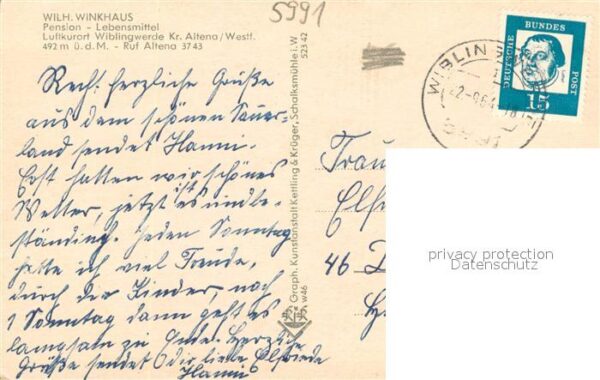 5991
WILH. WINKHAUS
Pension - Lebensmittel
Luftkurort Wiblingwerde Kr. Altena/Westf.
492 m ü.d.M. - Ruf Altena 3743
Recht herzliche Grüße
aus dem schönen Sauer-
land sendet Hanni.
Erst hatten wir schönes
Wetter, jetzt ist es unbe-
ständig. Jeden Sonntag
hatte ich viel Freude,
durch die Kinder, noch
1 Sonntag dann geht es
langsam zu Ende. Herzliche
Grüße sendet Dir liebe Elfriede
Hanni
Graph. Kunstanstalt Kettling & Krüger, Schalksmühle i. W.
523 42
w46
WIBLIN
DEUTSCHE
BUNDES
POST
15
Frau
Elfri
46 D
privacy protection
Datenschutz